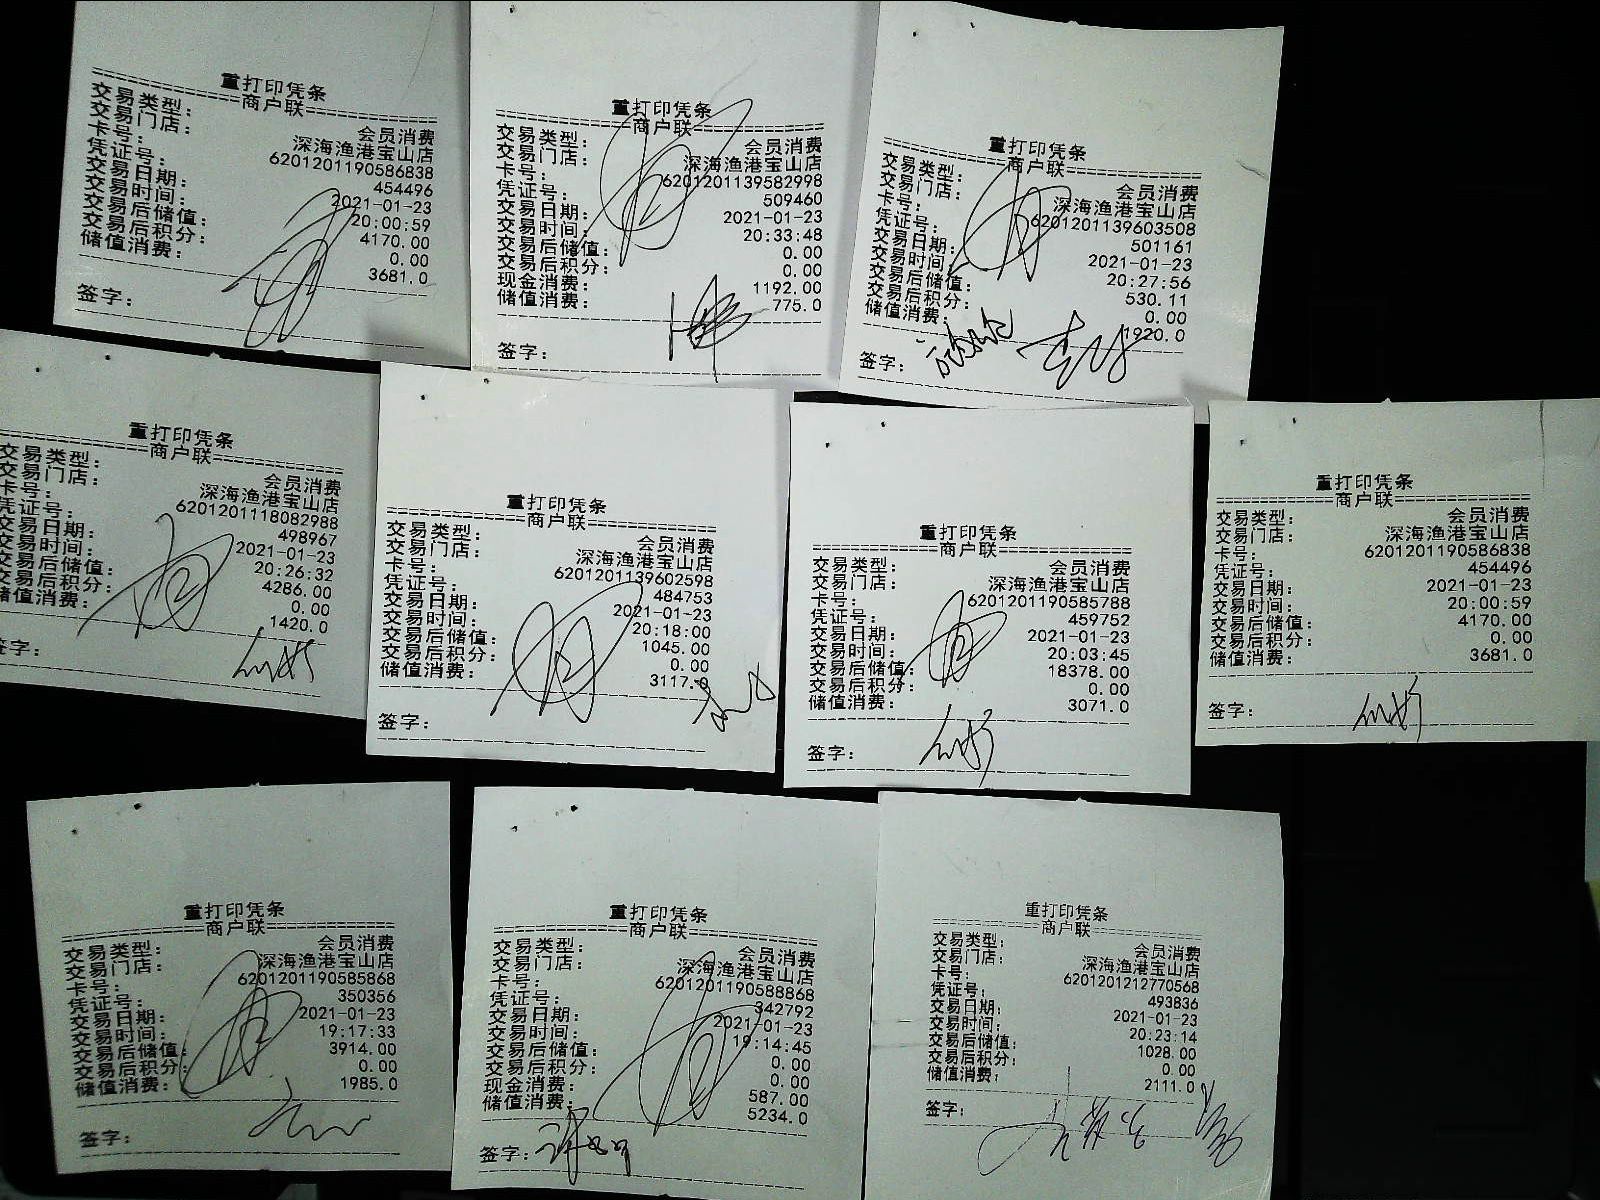 重打印凭条
商户联
交易类型: 会员消费
交易门店: 深海渔港宝山店
卡号: 6201201190586838
凭证号: 454496
交易日期: 2021-01-23
交易时间: 20:00:59
交易后储值: 4170.00
交易后积分: 0.00
储值消费: 3681.0
签字:
重打印凭条
商户联
交易类型: 会员消费
交易门店: 深海渔港宝山店
卡号: 6201201139582998
凭证号: 509460
交易日期: 2021-01-23
交易时间: 20:33:48
交易后储值: 0.00
交易后积分: 0.00
现金消费: 1192.00
储值消费: 775.0
签字:
重打印凭条
商户联
交易类型: 会员消费
交易门店: 深海渔港宝山店
卡号: 6201201139603508
凭证号: 501161
交易日期: 2021-01-23
交易时间: 20:27:56
交易后储值: 530.11
交易后积分: 0.00
储值消费: 1920.0
签字:
重打印凭条
商户联
交易类型: 会员消费
交易门店: 深海渔港宝山店
卡号: 6201201118082988
凭证号: 498967
交易日期: 2021-01-23
交易时间: 20:26:32
交易后储值: 4286.00
交易后积分: 0.00
储值消费: 1420.0
签字:
重打印凭条
商户联
交易类型: 会员消费
交易门店: 深海渔港宝山店
卡号: 6201201139602598
凭证号: 484753
交易日期: 2021-01-23
交易时间: 20:18:00
交易后储值: 1045.00
交易后积分: 0.00
储值消费: 3117.0
签字:
重打印凭条
商户联
交易类型: 会员消费
交易门店: 深海渔港宝山店
卡号: 6201201190585788
凭证号: 459752
交易日期: 2021-01-23
交易时间: 20:03:45
交易后储值: 18378.00
交易后积分: 0.00
储值消费: 3071.0
签字:
重打印凭条
商户联
交易类型: 会员消费
交易门店: 深海渔港宝山店
卡号: 6201201190586838
凭证号: 454496
交易日期: 2021-01-23
交易时间: 20:00:59
交易后储值: 4170.00
交易后积分: 0.00
储值消费: 3681.0
签字:
重打印凭条
商户联
交易类型: 会员消费
交易门店: 深海渔港宝山店
卡号: 6201201190585868
凭证号: 350356
交易日期: 2021-01-23
交易时间: 19:17:33
交易后储值: 3914.00
交易后积分: 0.00
储值消费: 1985.0
签字:
重打印凭条
商户联
交易类型: 会员消费
交易门店: 深海渔港宝山店
卡号: 6201201190588868
凭证号: 342792
交易日期: 2021-01-23
交易时间: 19:14:45
交易后储值: 0.00
交易后积分: 0.00
现金消费: 587.00
储值消费: 5234.0
签字:
重打印凭条
商户联
交易类型: 会员消费
交易门店: 深海渔港宝山店
卡号: 6201201212770568
凭证号: 493836
交易日期: 2021-01-23
交易时间: 20:23:14
交易后储值: 1028.00
交易后积分: 0.00
储值消费: 2111.0
签字: